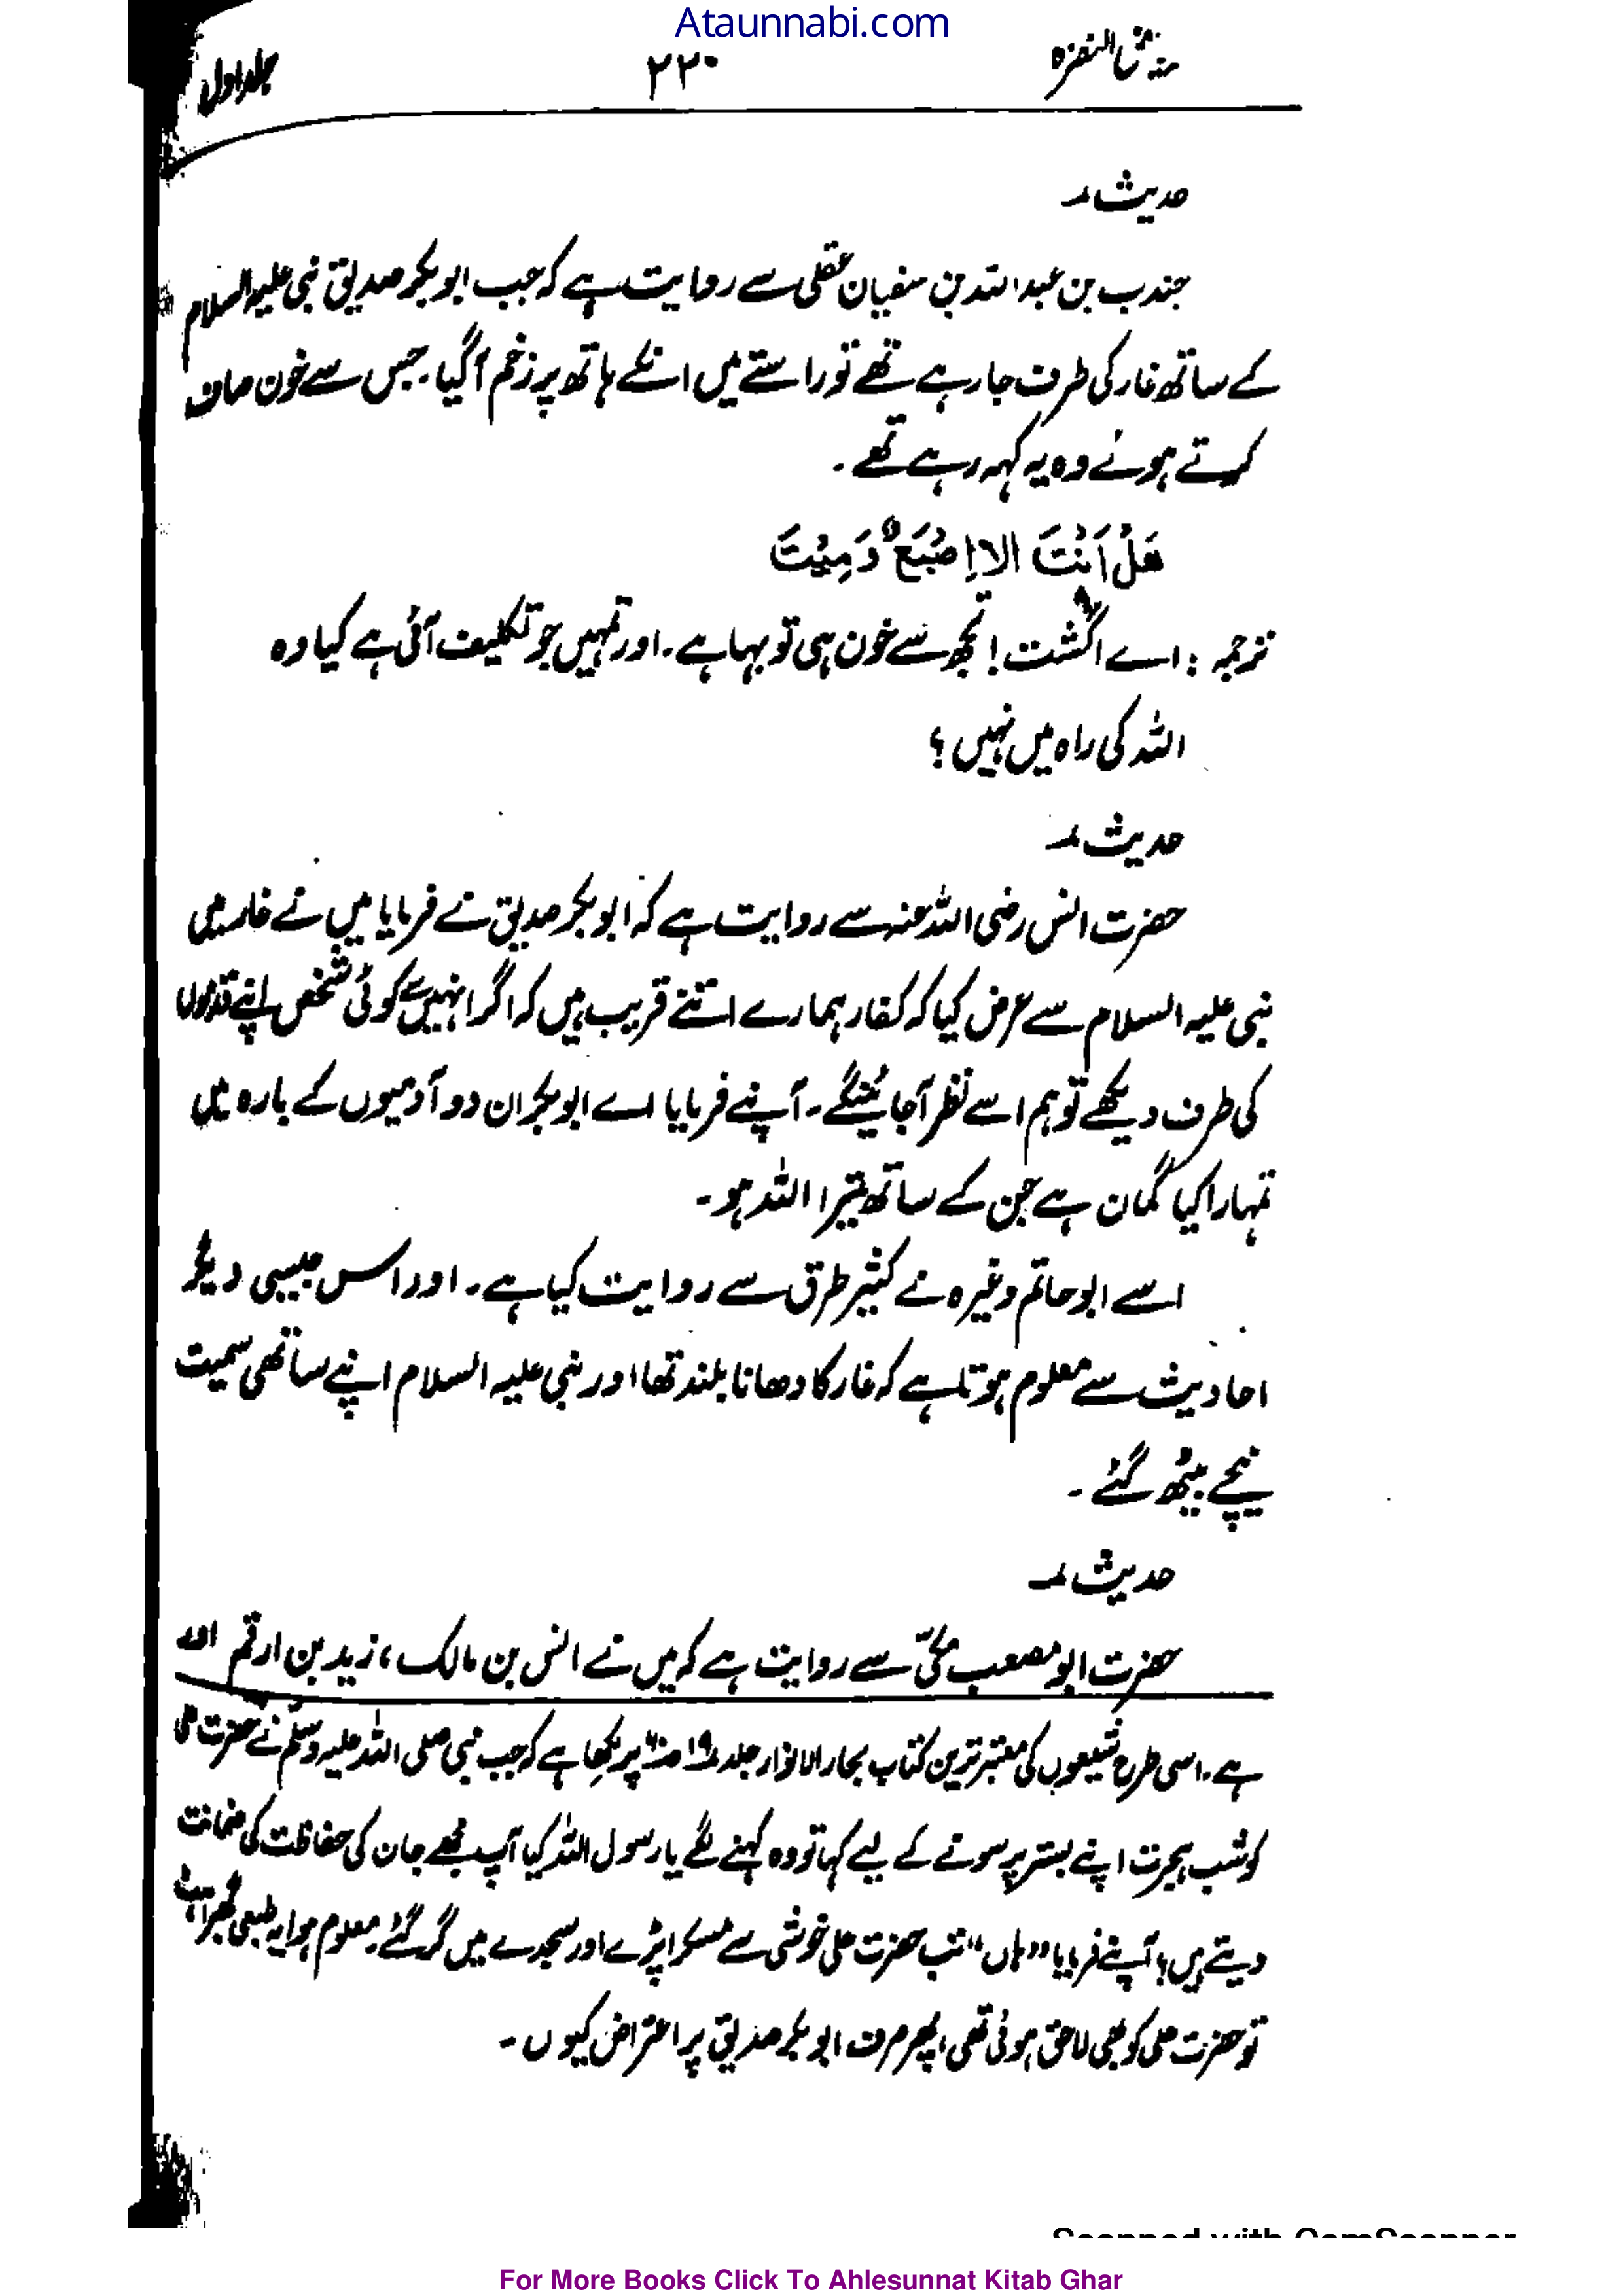 Ataunnabi.com
ریاض النضرہ ۲۲۰ جلد اول
حدیث :-
جندب بن عبد اللہ بن سفیان عقلی سے روایت ہے کہ جب ابو بکر صدیق نبی علیہ السلام
کے ساتھ غار کی طرف جا رہے تھے تو راستے میں انکے ہاتھ پر زخم آگیا۔ جس سے خون صاف
کرتے ہوئے وہ یہ کہہ رہے تھے۔
هَلْ اَنْتَ الا اِصْبَعٌ دَمِيْتَ
ترجمہ : اے انگشت! تجھ سے خون ہی تو بہا ہے۔ اور تمہیں جو تکلیف آئی ہے کیا وہ
اللہ کی راہ میں نہیں ؟
حدیث :-
حضرت انس رضی اللہ عنہ سے روایت ہے کہ ابو بکر صدیق نے فرمایا میں نے غار میں
نبی علیہ السلام سے عرض کیا کہ کفار ہمارے اتنے قریب ہیں کہ اگر انہیں سے کوئی شخص اپنے قدموں
کی طرف دیکھے تو ہم اسے نظر آجائینگے۔ آپنے فرمایا اے ابو بکر ان دو آدمیوں کے بارہ میں
تمہارا کیا گمان ہے جن کے ساتھ تیسرا اللہ ہو۔
اسے ابو حاتم وغیرہ نے کثیر طرق سے روایت کیا ہے۔ اور اس جیسی دیگر
احادیث سے معلوم ہوتا ہے کہ غار کا دھانا بلند تھا اور نبی علیہ السلام اپنے ساتھی سمیت
نیچے بیٹھ گئے۔
حدیث :-
حضرت ابو مصعب مکیّ سے روایت ہے کہ میں نے انس بن مالک، زید بن ارقم اور
ہے۔ اسی طرح شیعوں کی معتبر ترین کتاب بحار الانوار جلد ۱۹ پر لکھا ہے کہ جب نبی صلی اللہ علیہ وسلم نے حضرت علی
کو شب ہجرت اپنے بستر پر سونے کے لیے کہا تو وہ کہنے لگے یا رسول اللہ کیا آپ مجھے جان کی حفاظت کی ضمانت
دیتے ہیں؟ آپنے فرمایا ”ہاں“ تب حضرت علی خوشی سے مسکرا پڑے اور سجدے میں گر گئے۔ معلوم ہوا یہ طبعی گھبراہٹ
تو حضرت علی کو بھی لاحق ہوئی تھی، پھر صرف ابو بکر صدیق پر اعتراض کیوں۔
For More Books Click To Ahlesunnat Kitab Ghar